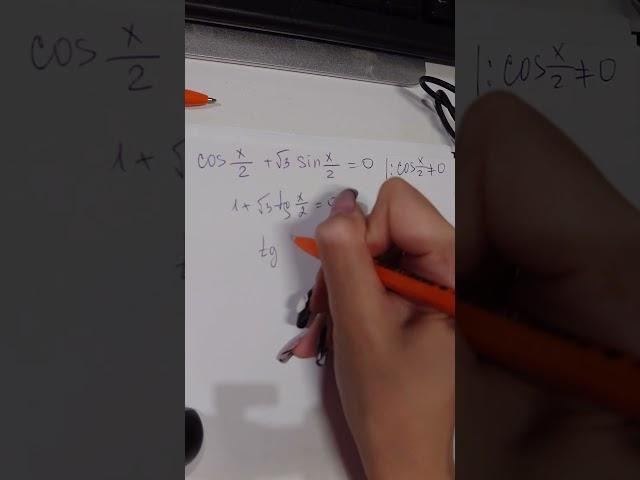 cos x/2 + √3 sin x/2 = 0 |: cos x/2 ≠ 0
1 + √3 tg x/2 = 0
tg